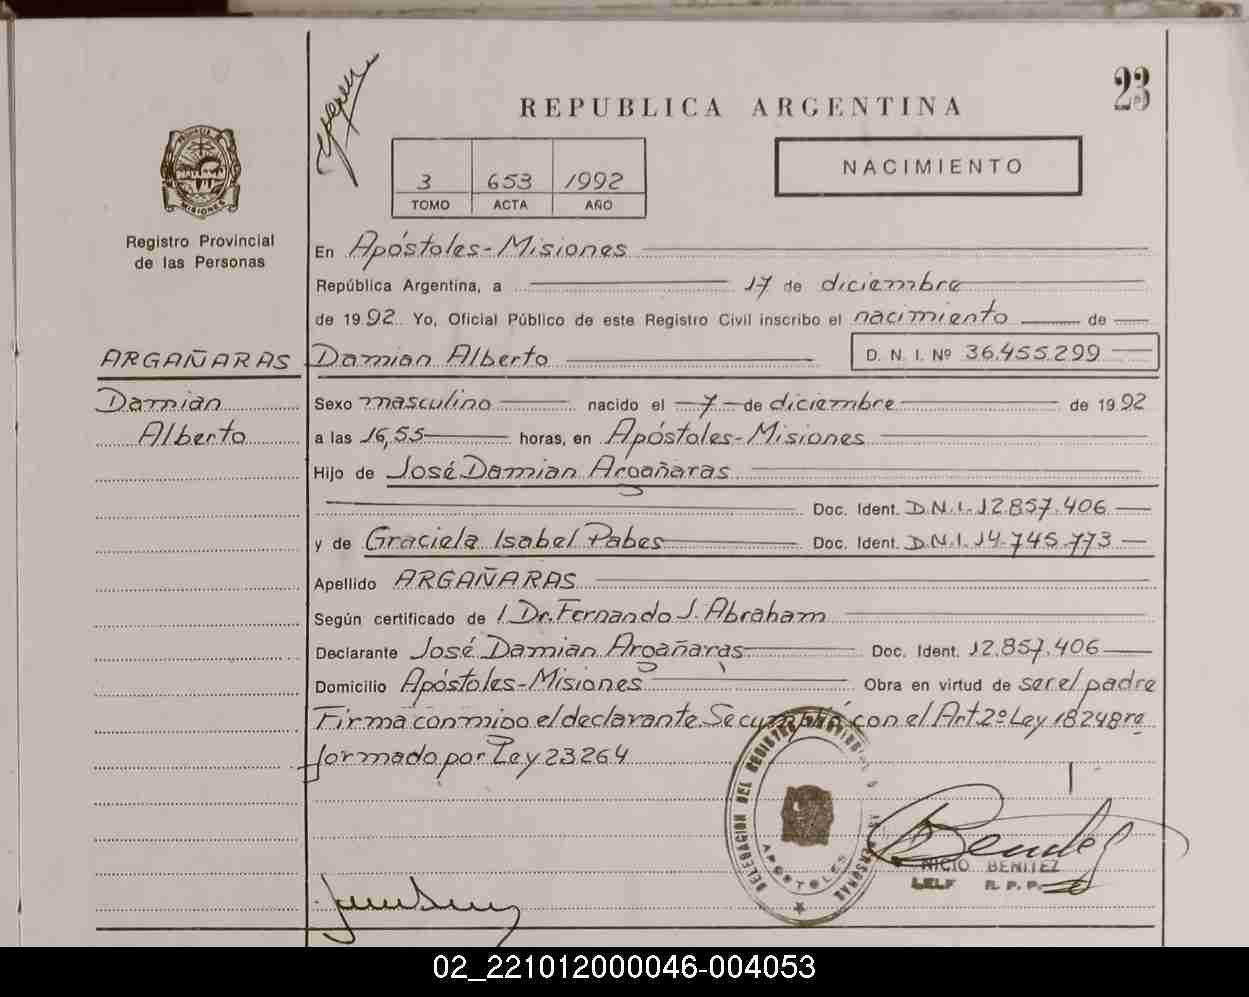 23
REPUBLICA ARGENTINA
NACIMIENTO
3 653 1992
TOMO ACTA AÑO
PROVINCIA DE MISIONES
Registro Provincial
de las Personas
En Apóstoles-Misiones
República Argentina, a 17 de diciembre
de 1992 Yo, Oficial Público de este Registro Civil inscribo el nacimiento de
ARGAÑARAS Damian Alberto D. N. I. Nº 36.455.299
Damian Sexo masculino nacido el 7 de diciembre de 1992
Alberto a las 16,55 horas, en Apóstoles-Misiones
Hijo de José Damian Argañaras
Doc. Ident. D.N.I. 12.857.406
y de Graciela Isabel Pabes Doc. Ident. D.N.I. 14.745.773
Apellido ARGAÑARAS
Según certificado de l Dr. Fernando J. Abraham
Declarante José Damian Argañaras Doc. Ident. 12.857.406
Domicilio Apóstoles-Misiones Obra en virtud de ser el padre
Firma conmigo el declarante. Se cumplió con el Art. 2º Ley 18248 re
formado por Ley 23264
DELEGACION DEL REGISTRO PROVINCIAL DE LAS PERSONAS
APOSTOLES
Benítez
NICIO BENITEZ
R. P. P.
02_221012000046-004053